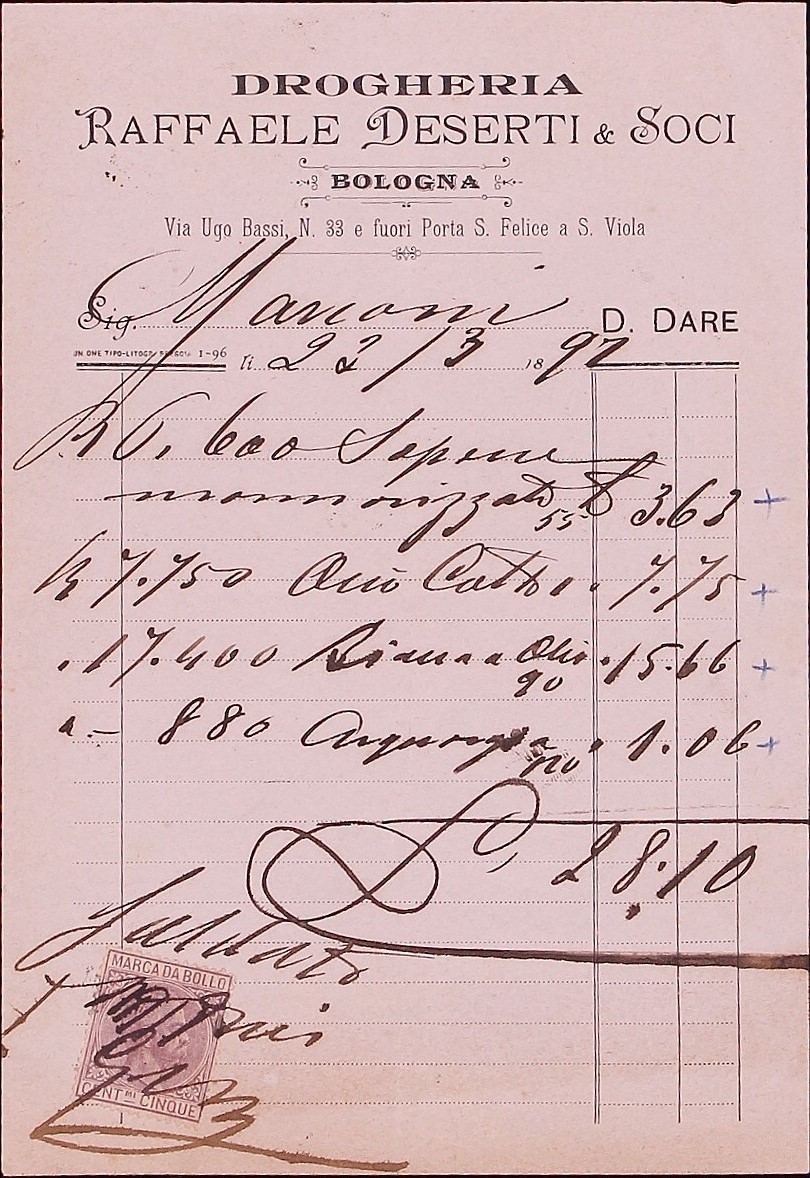 DROGHERIA
RAFFAELE DESERTI & SOCI
BOLOGNA
Via Ugo Bassi, N. 33 e fuori Porta S. Felice a S. Viola
Sig. Marconi D. DARE
1-96 li 22/3 1897
600 Sapone
marmorizzato 55 3.63 +
K 7.750 Olio Cotto " 7.75 +
" 17.400 Olio 90 " 15.66 +
" - 880 Acquaragia 120 " 1.06 +
£ 28.10
Saldato
MARCA DA BOLLO
CENTMI CINQUE